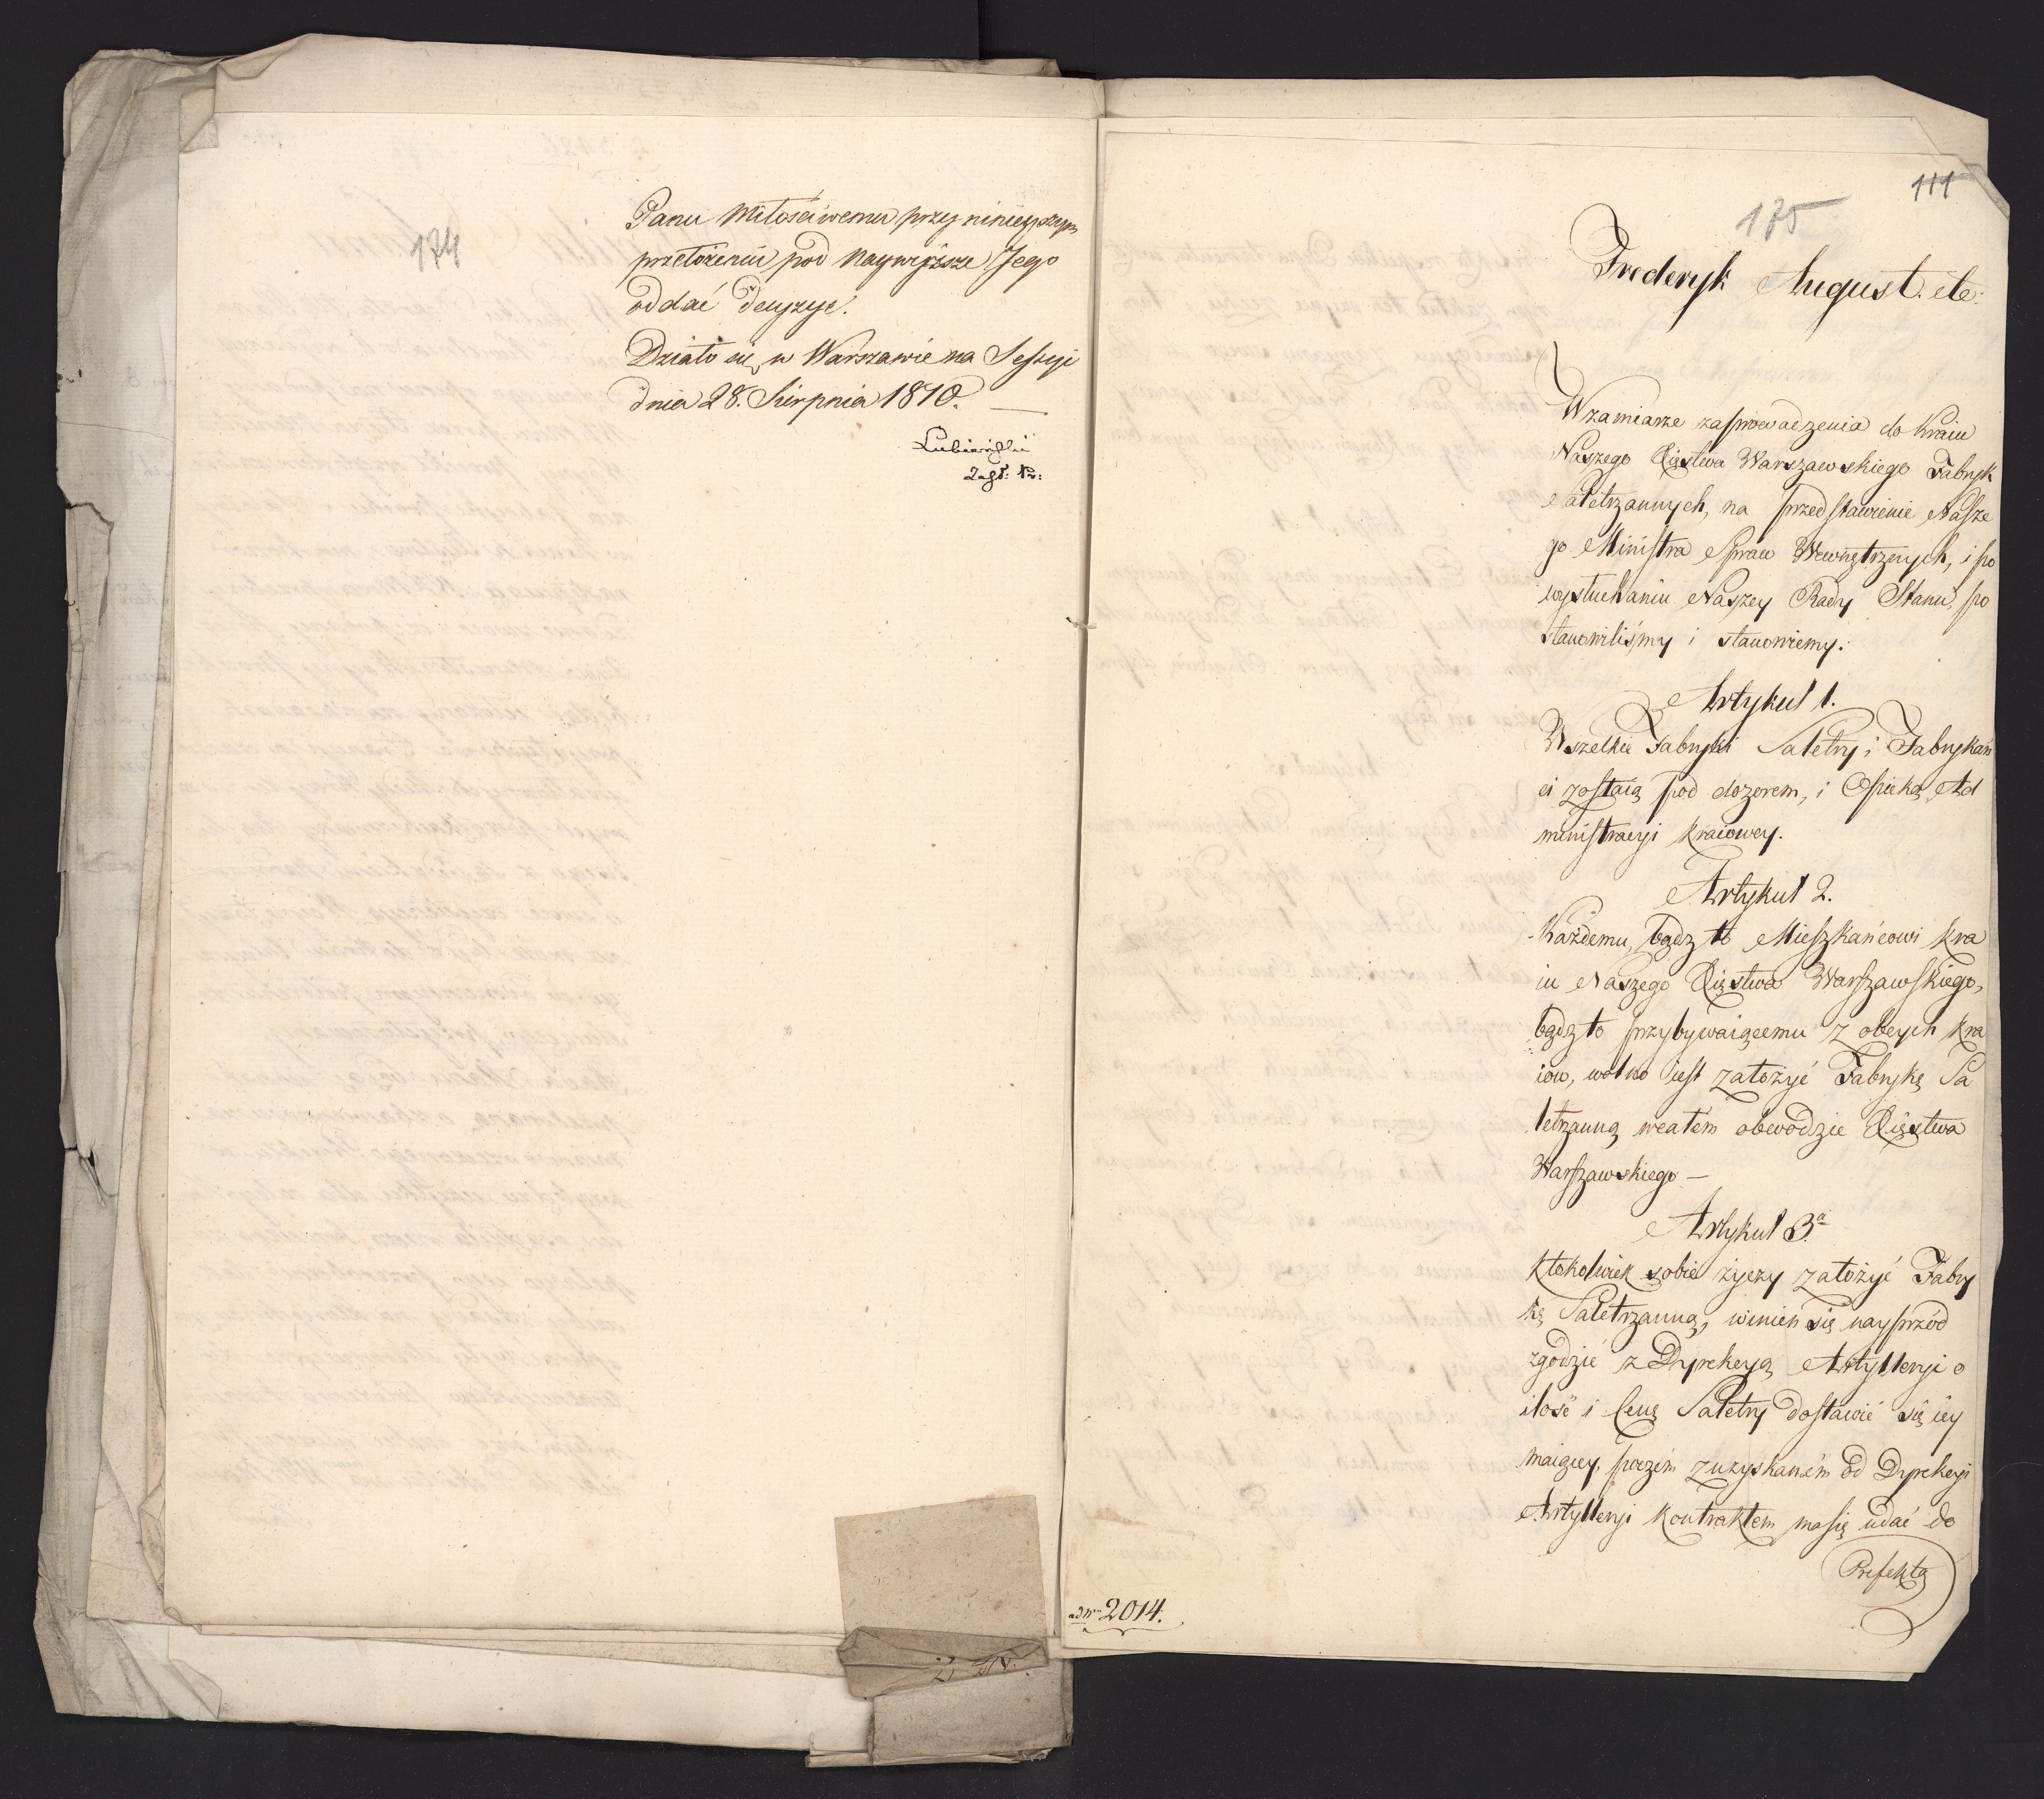 174
Panu Miłościwemu przy ninieyszym
przełożeniu pod Naywyższe Jego
oddać decyzye.
Działo się w Warszawie na Sessyi
dnia 28. Sierpnia 1810.
Lubieński
Zast. Pr:
111
175
Frederyk August. etc:
W zamiarze zaprowadzenia do Kraiu
Naszego Xięstwa Warszawskiego Fabryk
Saletrzannych, na przedstawienie Nasze
go Ministra Spraw Wewnętrznych, i po
wysłuchaniu Naszey Rady Stanu, po
stanowiliśmy i stanowiemy:
Artykuł 1.
Wszelkie Fabryki Saletry i Fabrykan
ci zostaią pod dozorem, i Opieką Ad
ministracyi kraiowey.
Artykuł 2.
Każdemu, bądz to Mieszkańcowi kra
iu Naszego Xięstwa Warszawskiego,
bądz to przybywaiącemu z obcych kra
iow, wolno iest założyć Fabrykę Sa
letrzanną wcałem obwodzie Xięstwa
Warszawskiego —
Artykuł 3.
Ktokolwiek sobie życzy założyć Fabry
kę Saletrzanną, winien się nayprzód
zgodzić z Dyrekcyą Artylleryi o
ilość i Cenę Saletry dostawić się iey
maiącey, poczém zuzyskaném od Dyrekcyi
Artylleryi kontraktem ma się udać do
Prefekta
ad Nrm 2014.